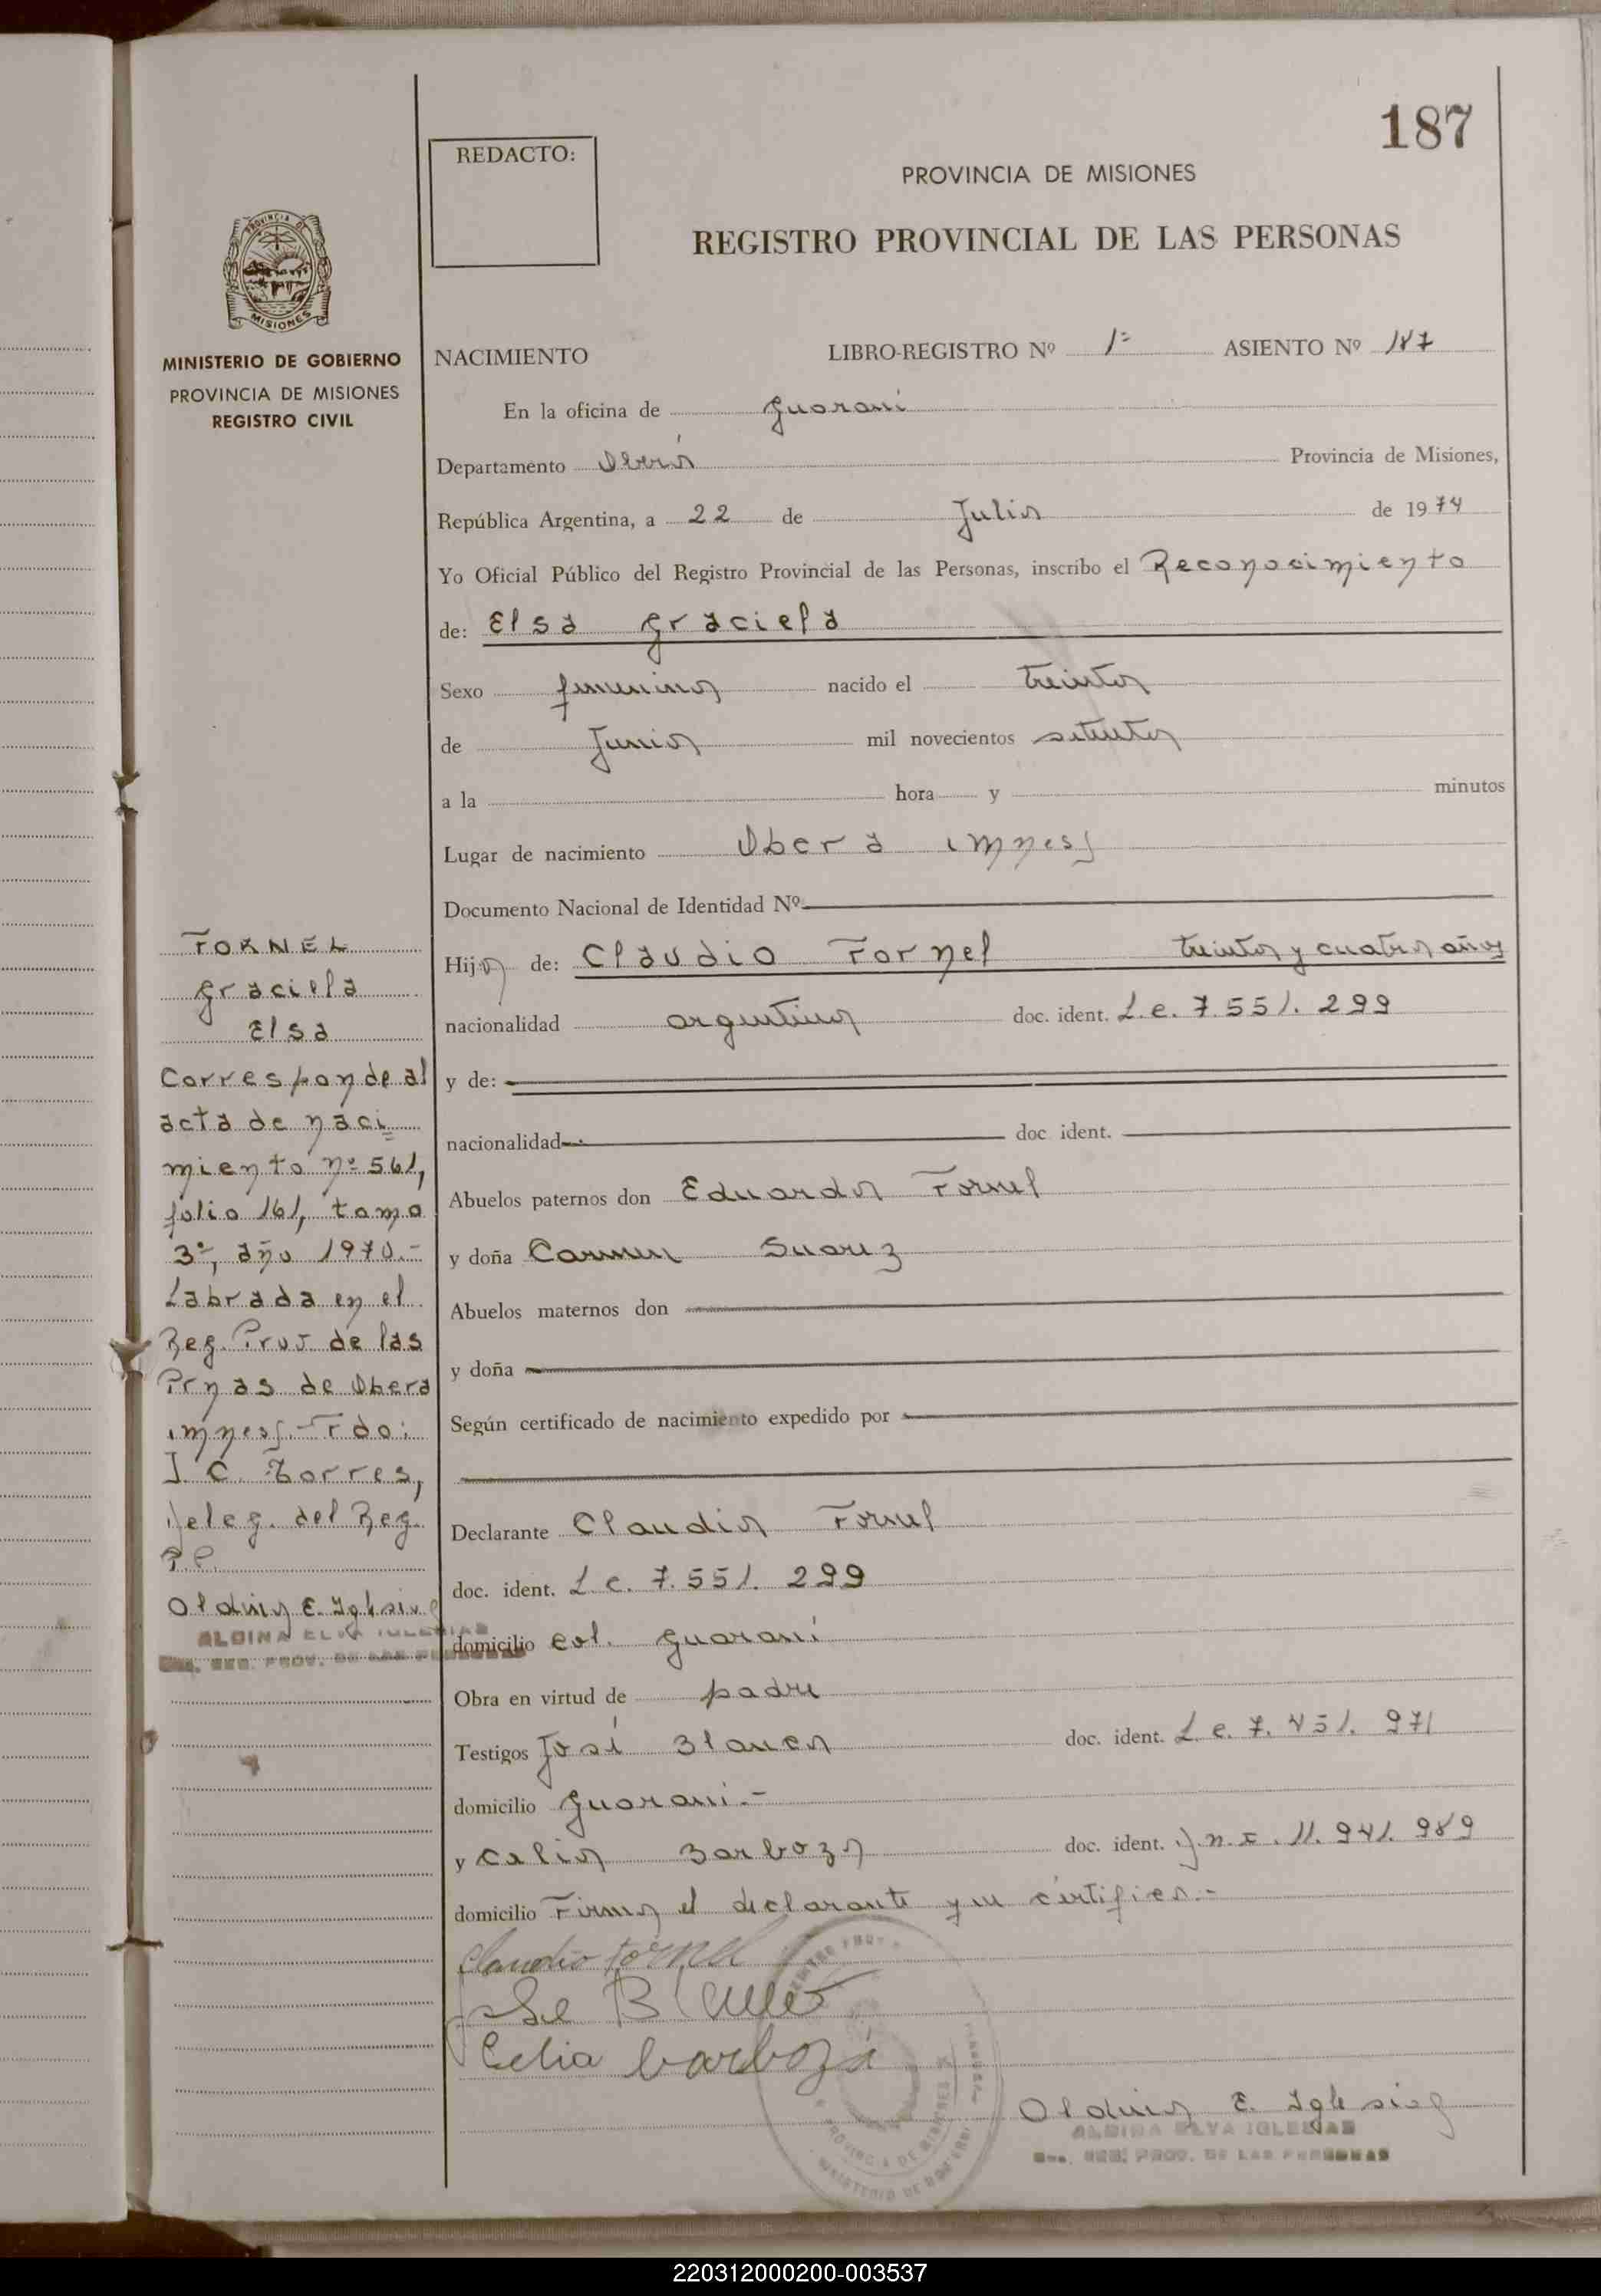 187
REDACTO:
PROVINCIA DE MISIONES
REGISTRO PROVINCIAL DE LAS PERSONAS
PROVINCIA DE
MISIONES
MINISTERIO DE GOBIERNO
PROVINCIA DE MISIONES
REGISTRO CIVIL
NACIMIENTO LIBRO-REGISTRO Nº 1º ASIENTO Nº 187
En la oficina de Guaraní
Departamento Oberá Provincia de Misiones,
República Argentina, a 22 de Julio de 1974
Yo Oficial Público del Registro Provincial de las Personas, inscribo el Reconocimiento
de: Elsa Graciela
Sexo femenino nacido el treinta
de Junio mil novecientos setenta
a la hora y minutos
Lugar de nacimiento Oberá (Mnes)
Documento Nacional de Identidad Nº
Hija de: Claudio Fornel treinta y cuatro años
nacionalidad argentina doc. ident. L.e. 7.551.299
y de:
nacionalidad doc ident.
Abuelos paternos don Eduardo Fornel
y doña Carmen Suarez
Abuelos maternos don
y doña
Según certificado de nacimiento expedido por
Declarante Claudio Fornel
doc. ident. L.e. 7.551.299
domicilio Col. Guaraní
Obra en virtud de padre
Testigos José Blanco doc. ident. L.e. 7.451.971
domicilio Guaraní.-
y Celia Barboza doc. ident. D.n.I. 11.941.989
domicilio Firma el declarante y un certifico.-
Claudio Fornel
Jose Blanco
Celia barboza
Aldina E. Iglesias
ALDINA ELVA IGLESIAS
REG. PROV. DE LAS PERSONAS
PROVINCIA DE MISIONES
MINISTERIO DE GOBIERNO
FORNEL
Graciela
Elsa
Corresponde al
acta de naci
miento nº 561,
folio 161, tomo
3º, año 1970.-
Labrada en el
Reg. Prov. de las
Prnas de Oberá
(Mnes).- Fdo:
J. C. Torres,
Deleg. del Reg.
P.P.
Aldina E. Iglesias
ALDINA ELVA IGLESIAS
REG. PROV. DE LAS PERSONAS
220312000200-003537